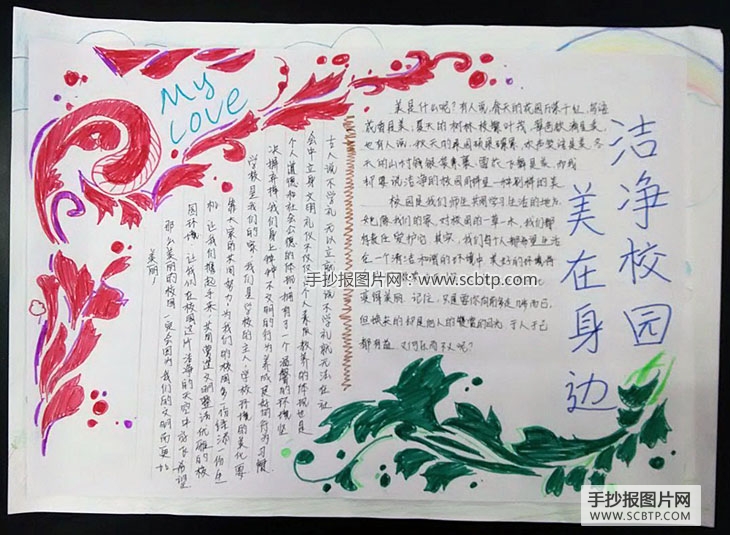 My
Love
洁净校园
美在身边
美是什么呢？有人说，春天的花园万紫千红，鸟语
花香是美，夏天的树林枝繁叶茂
也有人说，秋天的果园硕果累累
天的山村银装素裹，雪花飞舞是美，而我
却要说洁净的校园同样是一种别样的美
校园是我们师生共同学习生活的地方
她像我们的家，对校园的一草一木，我们都
有责任爱护它，其实，我们每个人都希望生活
在一个清洁和谐的环境中，美好的环境
变得美丽，记住，只是要你向前每走一步而已，
但换来的却是他人的赞赏的目光，于人于己
都有益，又何乐而不为呢？
古人说不学礼无以立就是说不学礼就无法在社
会中立身文明礼仪不仅仅是个人素质教养的体现也是
个人道德和社会公德的体现拥有了一个温馨的环境坚
决摒弃掉我们身上种种不文明的行为养成良好的行为习惯
学校是我们的家，我们是学校的主人，学校环境的美化要
靠大家的共同努力，为我们的校园多一份绿添一份色
让我们携起手来，共同营造文明整洁优雅的校
园环境，让我们在校园这片洁净的天空中成长希望
那么美丽的校园一定会因为我们的文明而更加
美丽！
手抄报图片网：www.scbtp.com
手抄报图片网
WWW.SCBTP.COM